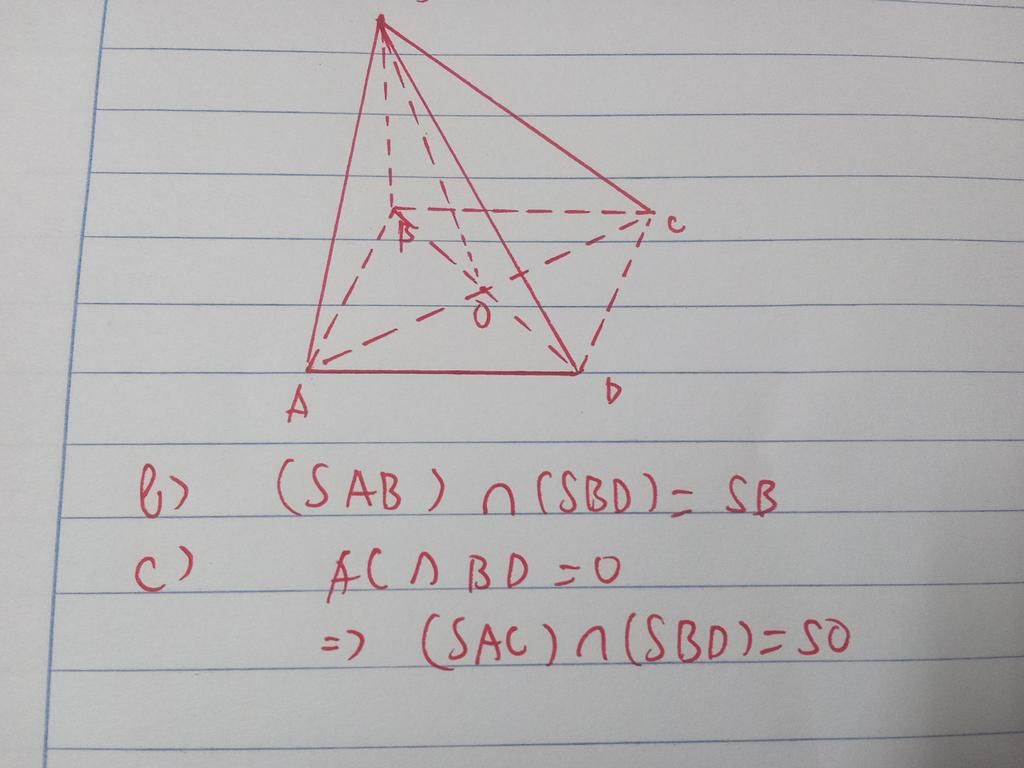 B
C
O
A
D
b) (SAB) ∩ (SBD) = SB
c) AC ∩ BD = O
=> (SAC) ∩ (SBD) = SO